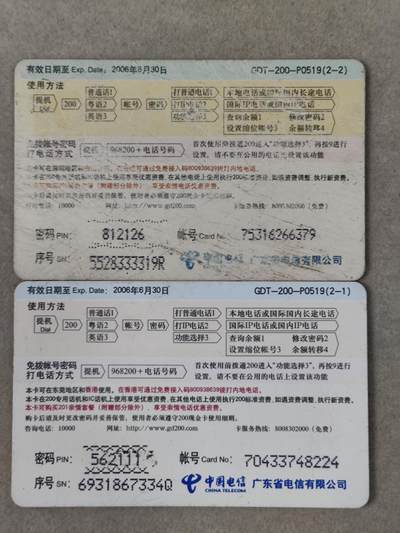 有效日期至 Exp. Date: 2006年6月30日 GDT-200-P0519(2-2)
使用方法
普通话1 打普通电话1 本地电话或国际国内长途电话
提机 Dial 200 粤语2 帐号 密码 打IP电话2 国际IP电话或国内IP电话
英语3 功能选择3 查询余额1 修改密码2
设置缩位帐号3 余额转移4
免拨帐号密码 打电话方式 提机 968200+电话号码 首次使用前拨打200进入"功能选择3",再按9进行设置,请不要在公用的电话上设置该功能
密码 PIN: 812126 帐号 Card No: 75316266379
序号 SN: 5528333319R 中国电信 广东省电信有限公司
有效日期至 Exp. Date: 2006年6月30日 GDT-200-P0519(2-1)
使用方法
普通话1 打普通电话1 本地电话或国际国内长途电话
提机 Dial 200 粤语2 帐号 密码 打IP电话2 国际IP电话或国内IP电话
英语3 功能选择3 查询余额1 修改密码2
设置缩位帐号3 余额转移4
免拨帐号密码 打电话方式 提机 968200+电话号码 首次使用前拨打200进入"功能选择3",再按9进行设置,请不要在公用的电话上设置该功能
本卡可在东莞地区和香港使用,在香港可通过免费接入码800938639拨打内地电话。
本卡在200专用话机和IC话机上使用执行200标准资费,如遇资费调整,执行新资费。
本卡可购买201亲情套餐(附赠部分除外),享受亲情电话优惠资费。
购卡后请及时更改密码并妥善保管,使用者必须遵守200现金卡使用细则。
咨询电话: 10000 网址: http://www.gd200.com 卡服务热线: 8008302000(免费)
密码 PIN: 562111 帐号 Card No: 70433748224
序号 SN: 6931867334Q 中国电信 CHINA TELECOM 广东省电信有限公司